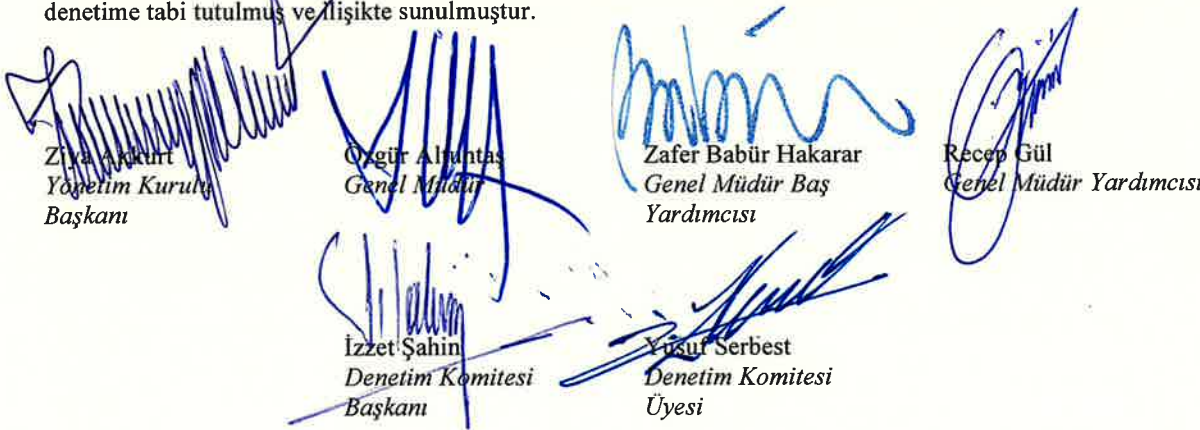 denetime tabi tutulmuş ve ilişikte sunulmuştur.
Ziya Akkurt
Yönetim Kurulu
Başkanı
Özgür Altuntaş
Genel Müdür
Zafer Babür Hakarar
Genel Müdür Baş
Yardımcısı
Recep Gül
Genel Müdür Yardımcısı
İzzet Şahin
Denetim Komitesi
Başkanı
Yusuf Serbest
Denetim Komitesi
Üyesi